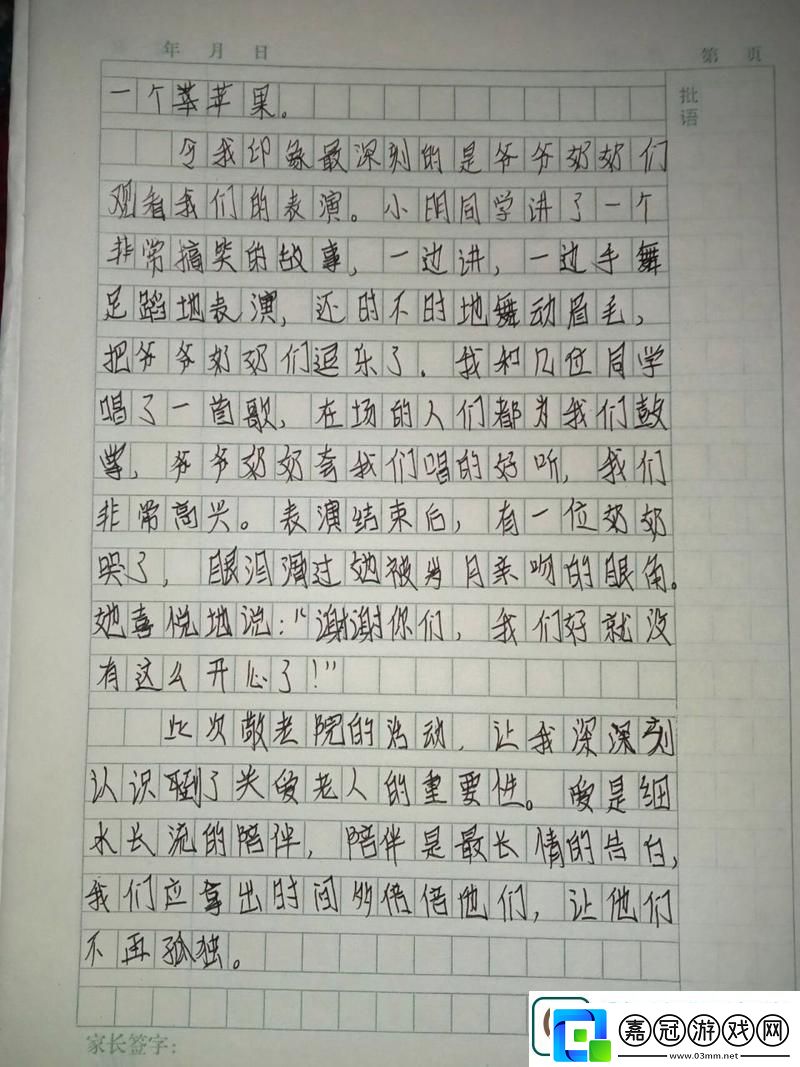 年 月 日 第 页
批语
一个苹苹果。
令我印象最深刻的是爷爷奶奶们
观看我们的表演。小明同学讲了一个
非常搞笑的故事，一边讲，一边手舞
足蹈地表演，还时不时地舞动眉毛，
把爷爷奶奶们逗乐了．我和几位同学
唱了一首歌，在场的人们都为我们鼓
掌，爷爷奶奶夸我们唱的好听，我们
非常高兴。表演结束后，有一位奶奶
哭了，眼泪滑过她被岁月亲吻的眼角。
她喜悦地说：“谢谢你们，我们好就没
有这么开心了！”
此次敬老院的活动，让我深深刻
认识到了关爱老人的重要性。爱是细
水长流的陪伴，陪伴是最长情的告白，
我们应拿出时间多陪陪他们，让他们
不再孤独。
家长签字：
嘉冠游戏网
www.03mm.net